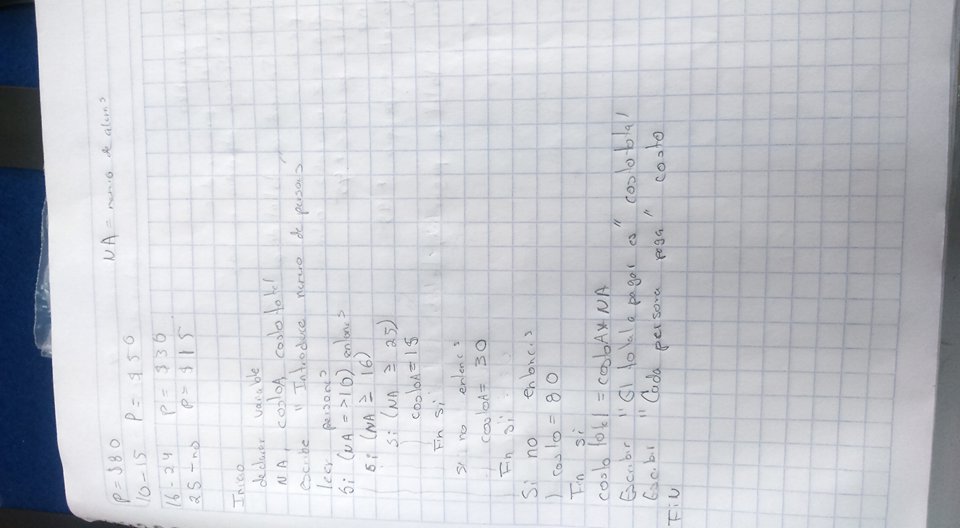 P = $80
NA = numro de alums
10-15 P = $50
16-24 P = $30
25-no P = $15
Inicio
declarar variable
NA, costoA costo total
escribe " Introduce numro de persons"
leer persons
Si (NA => 10) entones
Si (NA ≥ 16)
Si (NA ≥ 25)
costoA = 15
Fin si
Si no entences
costoA = 30
Fin Si
Si no entonces
costo = 80
Fin Si
costo total = costoA * NA
Escribir "El total a pagar es" costo total
Escribi "Cada persona paga" costo
FiN